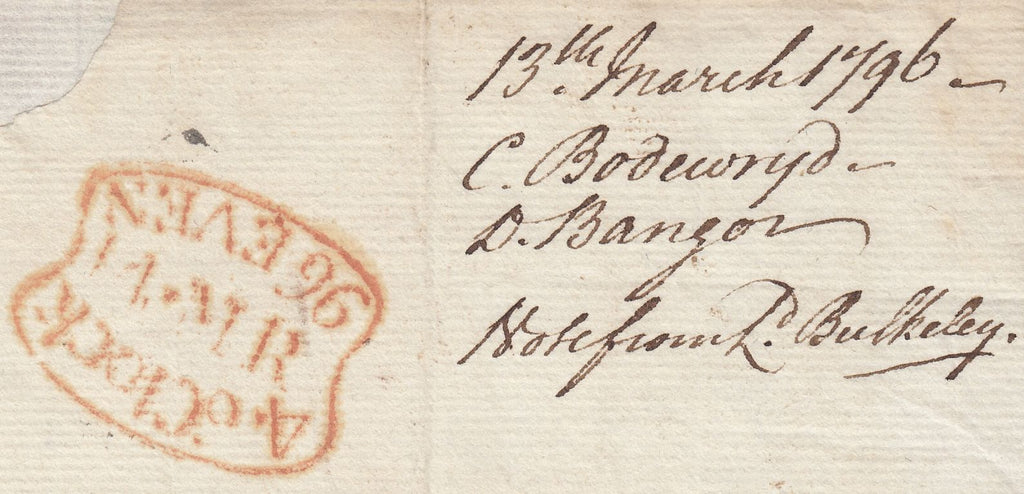 13th March 1796
C. Bodewryd
D. Bangor
Note from Ld. Bulkeley.
4 o'Clock
96 EVEN